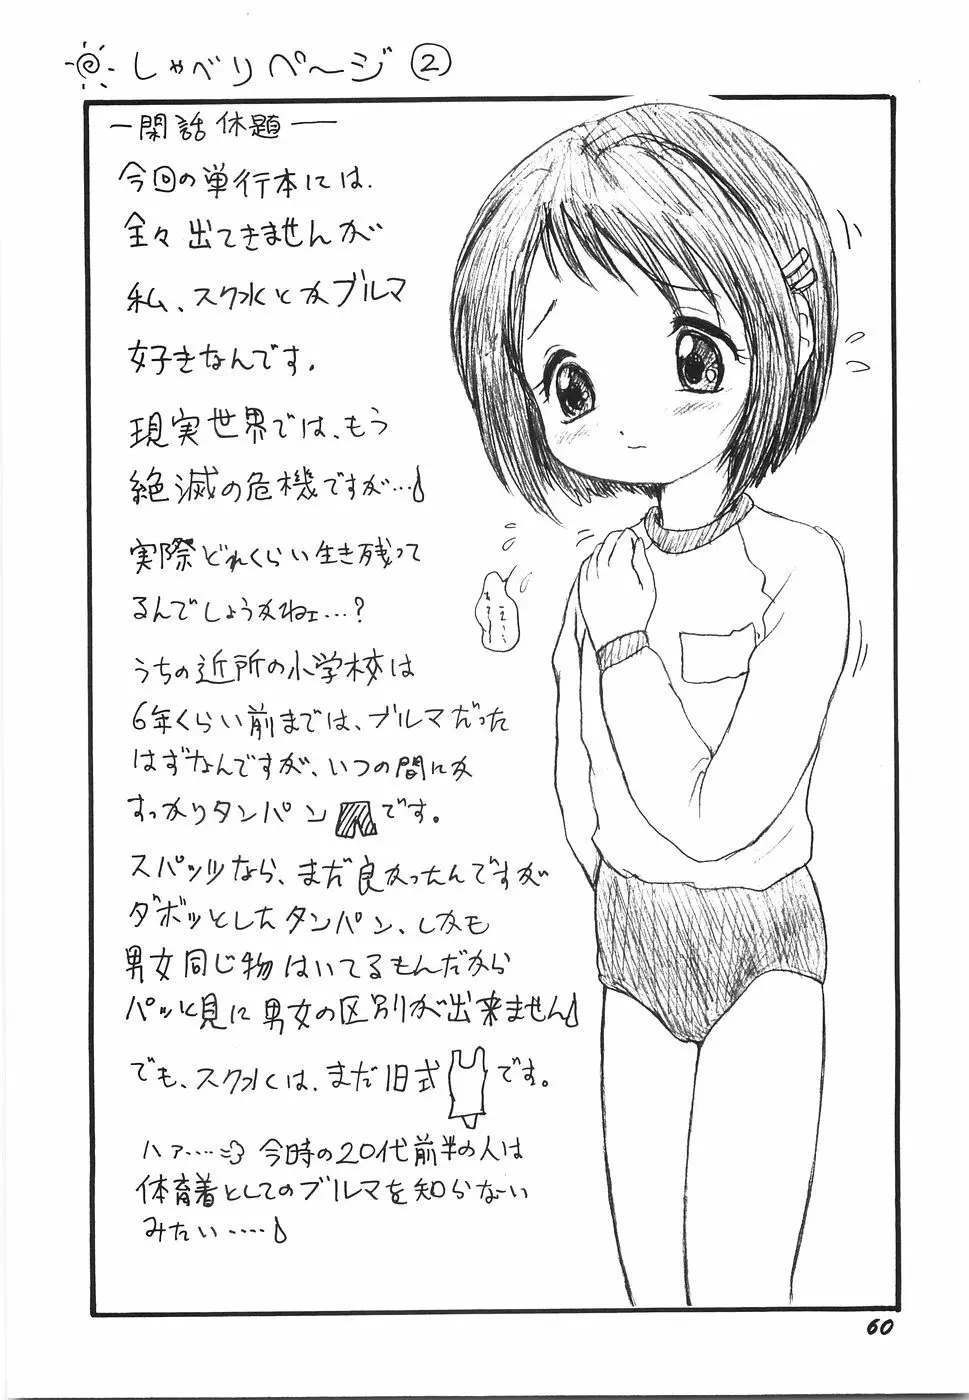 しゃべりページ②
―閑話休題―
今回の単行本には、
全々出てきませんが
私、スク水とかブルマ
好きなんです。
現実世界では、もう
絶滅の危機ですが…
実際どれくらい生き残って
るんでしょうかねェ…?
うちの近所の小学校は
6年くらい前までは、ブルマだった
はずなんですが、いつの間にか
すっかりタンパンです。
スパッツなら、まだ良かったんですが
ダボッとしたタンパン、しかも
男女同じ物はいてるもんだから
パッと見に男女の区別が出来ません
でも、スク水は、まだ旧式です。
ハァ…… 今時の20代前半の人は
体育着としてのブルマを知らない
みたい……
60